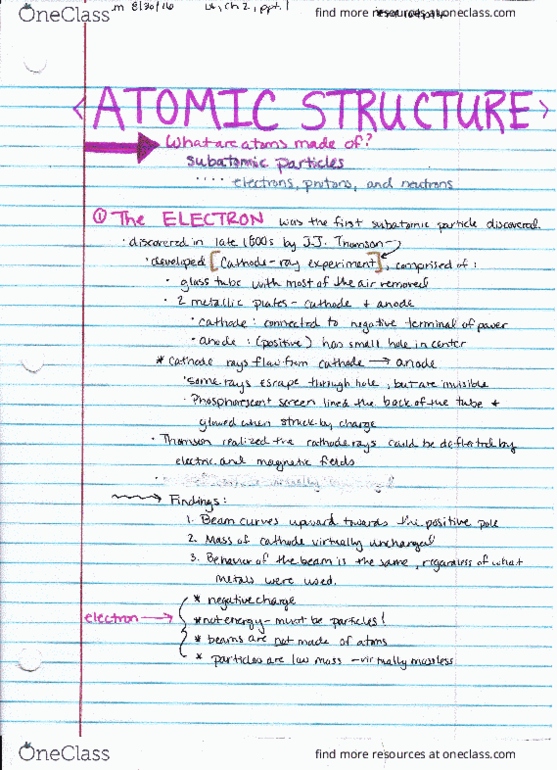 OneClass
m 8/30/16
ch 2, ppt. 1
find more resources at oneclass.com
<ATOMIC STRUCTURE>
What are atoms made of?
subatomic particles
.... electrons, protons, and neutrons
① The ELECTRON was the first subatomic particle discovered.
· discovered in late 1800s by J.J. Thomson
· developed [cathode-ray experiment], comprised of:
· glass tube with most of the air removed
· 2 metallic plates - cathode + anode
· cathode: connected to negative terminal of power
· anode: (positive) has small hole in center
* cathode rays flow from cathode → anode
· some rays escape through hole, but are invisible
· Phosphorescent screen lined the back of the tube +
glowed when struck by charge
· Thomson realized the cathode rays could be deflected by
electric and magnetic fields
→ Findings:
1. Beam curves upward towards the positive pole
2. Mass of cathode virtually unchanged
3. Behavior of the beam is the same, regardless of what
metals were used.
* negative charge
electron → * not energy - must be particles!
* beams are not made of atoms
* particles are low mass - virtually massless
OneClass
find more resources at oneclass.com